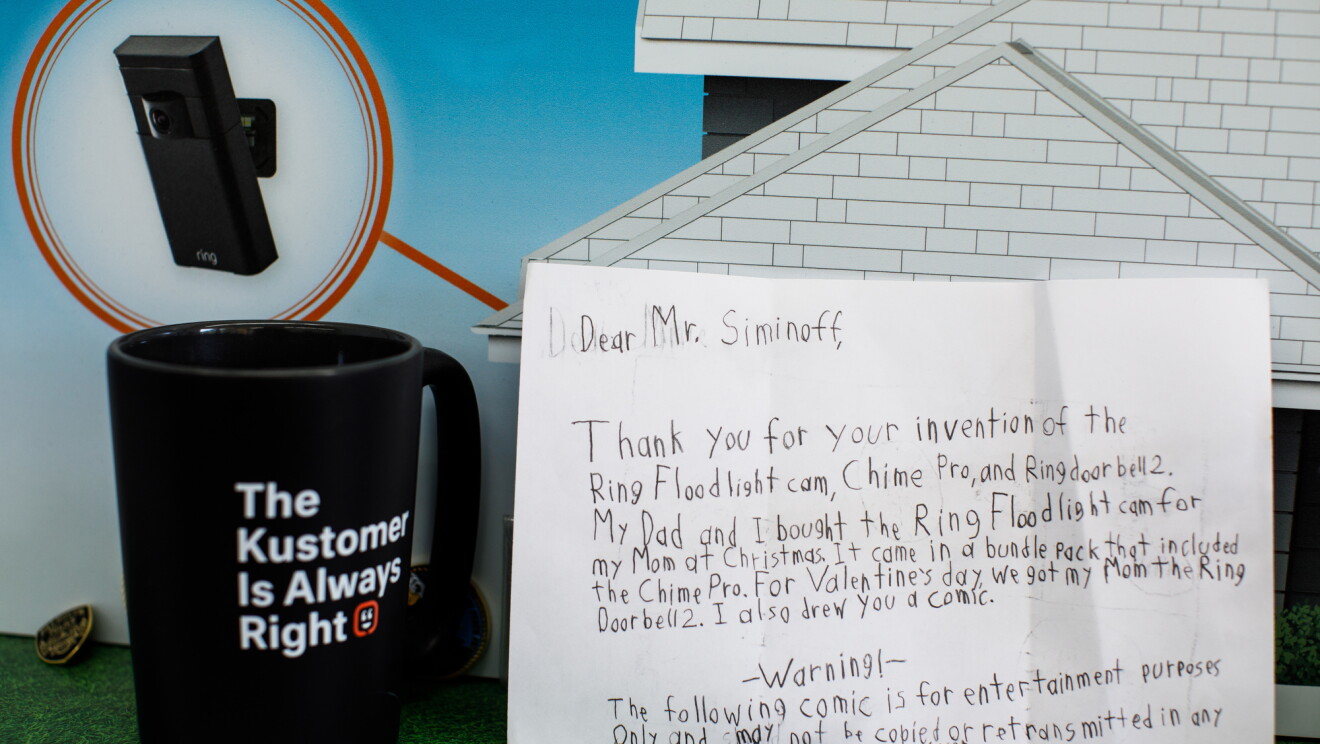 ring
The
Kustomer
Is Always
Right
Dear Mr. Siminoff,
Thank you for your invention of the
Ring Floodlight cam, Chime Pro, and Ring doorbell 2.
My Dad and I bought the Ring Floodlight cam for
my Mom at Christmas. It came in a bundle pack that included
the Chime Pro. For Valentine's day, we got my Mom the Ring
Doorbell 2. I also drew you a comic.
-Warning!-
The following comic is for entertainment purposes
Only and may not be copied or retransmitted in any